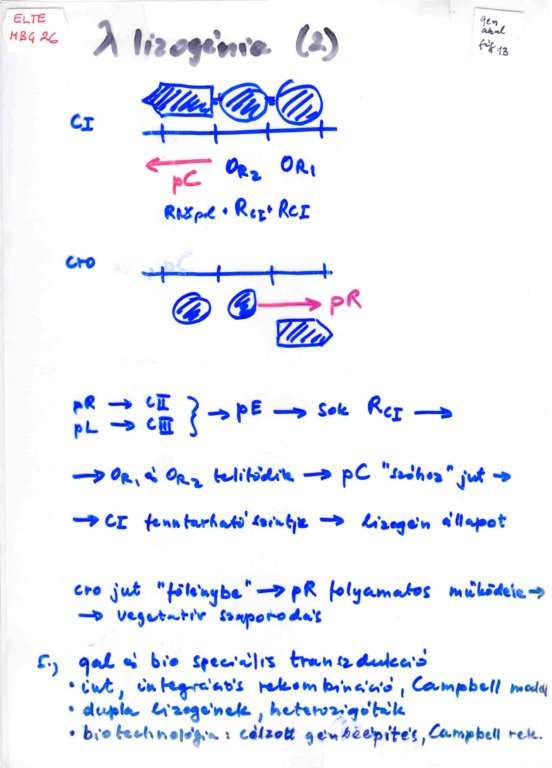 ELTE
MBG 26
λ lizogénia (2)
gen
anal
fág 13
CI
pC OR2 OR1
RNSpol + RCI + RCI
cro
pR
pR → CII
pL → CIII } → pE → sok RCI →
→ OR1 és OR2 telítődik → pC "szóhoz" jut →
→ CI fenntartható szintje → lizogén állapot
cro jut "fölénybe" → pR folyamatos működése →
→ vegetatív szaporodás
5., gal és bio speciális transzdukció
• int, integrációs rekombináció, Campbell modell
• dupla lizogének, heterozigóták
• biotechnológia: célzott génbeépítés, Campbell rek.